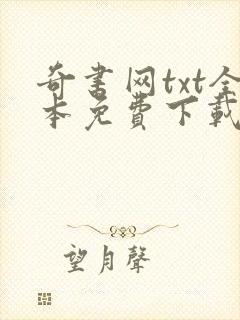 奇书网txt全
本免费下载
望月聲